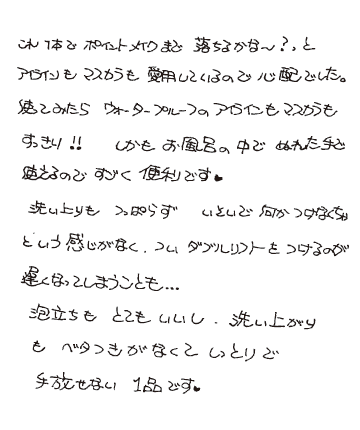 これ1本で ポイントメイクまで 落ちるかな〜?、と
アイラインも マスカラも 愛用しているので 心配でした。
使ってみたら ウォータープルーフの アイラインもマスカラも
すっきり!! しかも お風呂の 中で ぬれた手で
使えるので すごく 便利です♥
洗い上りも つっぱらず いそいで 何かつけなくちゃ
という 感じがなく、つい ダブルリフトを つけるのが
遅くなってしまうことも...
泡立ちも とても いいし、洗い上がり
も ベタつきがなくて しっとりで
手放せない 1品です♥